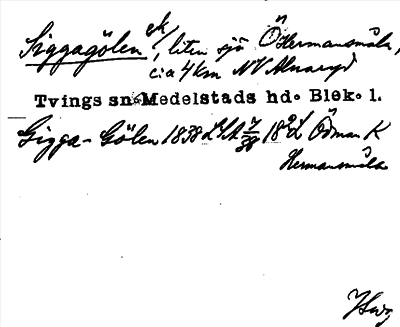 Siggagölen ek /, liten sjö Ö Hermansmåla,
c:a 4 km NV Alnaryd
Tvings sn. Medelstads hd. Blek. l.
Gigga-Gölen 1838 LSA 18 Ödman K
Hermansmåla